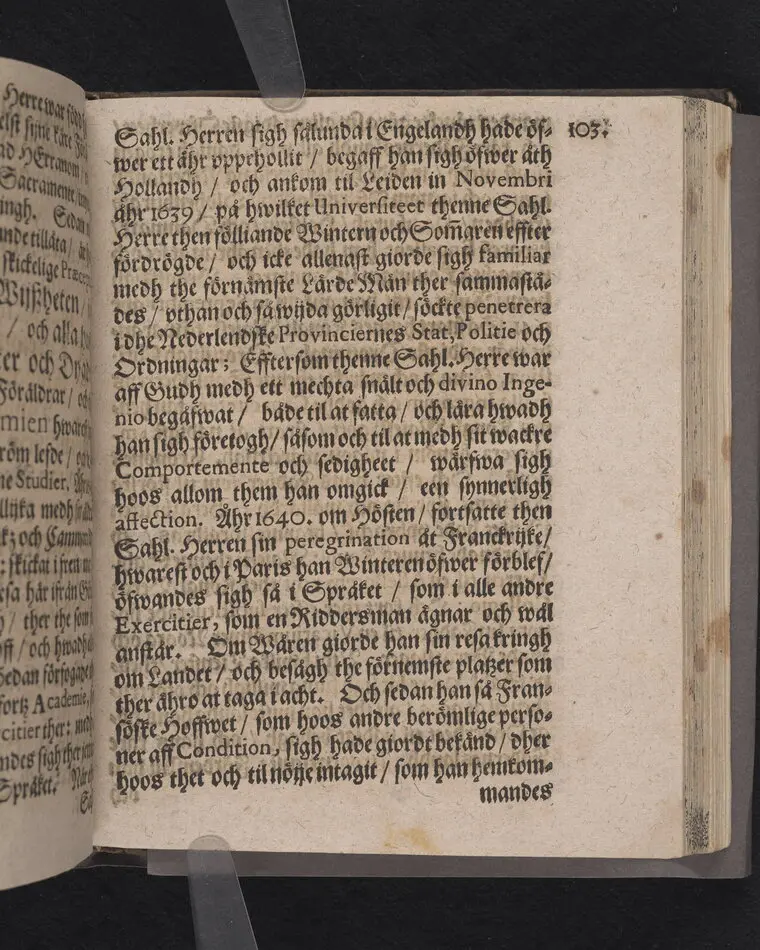 Herre war
Sacramente
ingh. Sedan
unde tillåta /
Wijßheten /
/ och alla
Föräldrar /
mien
röm lesde /
ne Studier.
llijka medh
k; och
/ ther the som
off / och
edan
Academie,
citier ther:
ndes sigh ther
Språket.
103.
Sahl. Herren sigh sålunda i Engelandh hade öf-
wer ett åhr vppehollit / begaff han sigh öfwer åth
Hollandh / och ankom til Leiden in Novembri
åhr 1639 / på hwilket Universiteet thenne Sahl.
Herre then fölliande Wintern och Som̃aren effter
fördrögde / och icke allenast giorde sigh familiar
medh the förnämste Lärde Män ther sammastä-
des / vthan och så wijda görligit / söckte penetrera
i dhe Nederlendske Provinciernes Stat, Politie och
Ordningar; Efftersom thenne Sahl. Herre war
aff Gudh medh ett mechta snält och divino Inge-
nio begåfwat / både til at fatta / och lära hwadh
han sigh företogh / såsom och til at medh sit wackre
Comportemente och sedigheet / wärfwa sigh
hoos allom them han omgick / een synnerligh
affection. Åhr 1640. om Hösten / fortsatte then
Sahl. Herren sin peregrination åt Franckrijke /
hwarest och i Paris han Winteren öfwer förblef /
öfwandes sigh så i Språket / som i alle andre
Exercitier, som en Riddersman ägnar och wäl
anstår. Om Wåren giorde han sin resa kringh
om Landet / och besågh the förnemste platzer som
ther ähro at taga i acht. Och sedan han så Fran-
söske Hoffwet / som hoos andre berömlige perso-
ner aff Condition, sigh hade giordt bekänd / dher
hoos thet och til nötje intagit / som han hemkom-
mandes